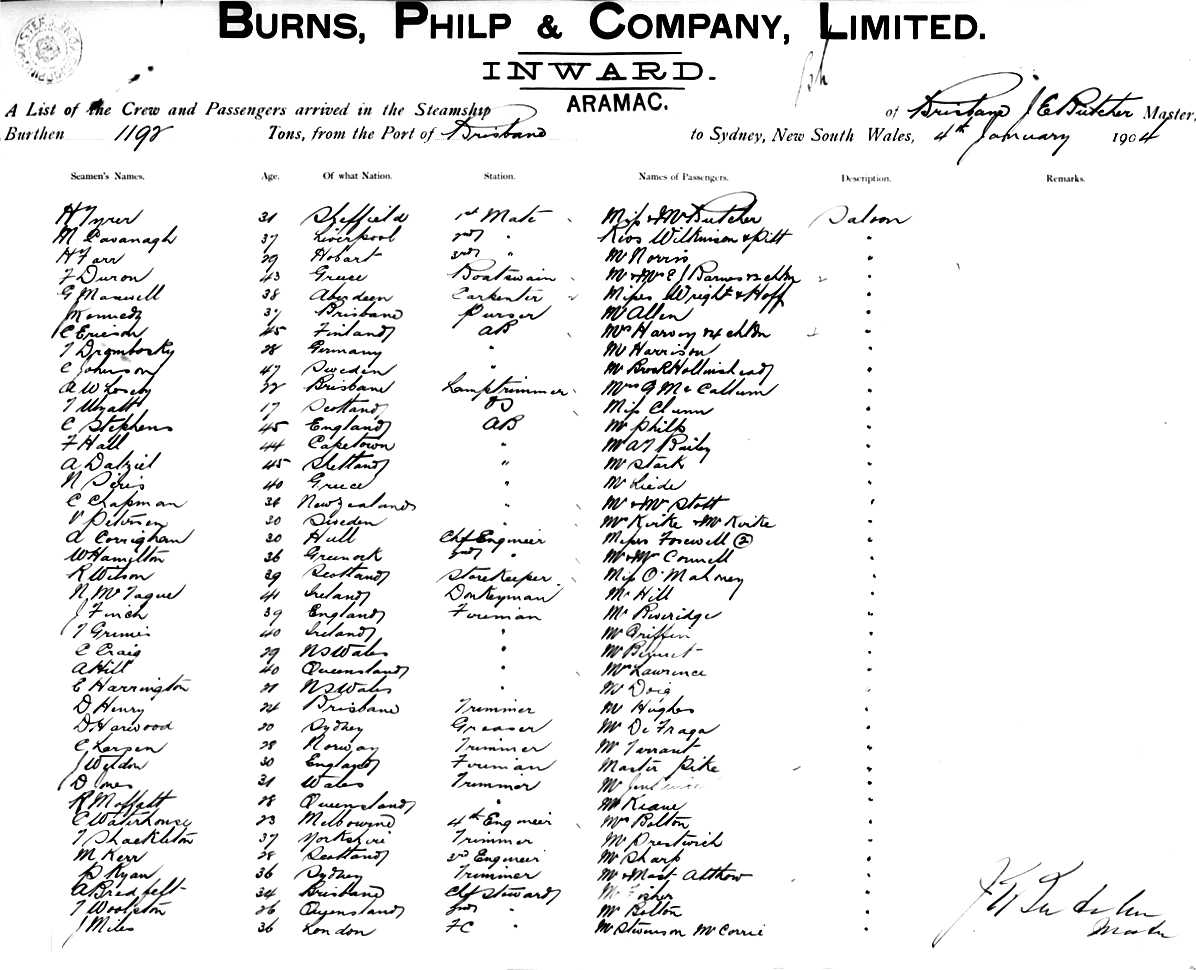 BURNS, PHILP & COMPANY, LIMITED.
INWARD.
ARAMAC.
A List of the Crew and Passengers arrived in the Steamship of Brisbane J E Butcher Master,
Burthen 1192 Tons, from the Port of Brisbane to Sydney, New South Wales, 4th January 1904
Seamen's Names. Age. Of what Nation. Station. Names of Passengers. Description. Remarks.
H Tyrer 31 Sheffield 1st Mate Miss & Mr Butcher Saloon
M Cavanagh 37 Liverpool 2nd " Wilkinson & Pitt "
H Farr 29 Hobart 3rd " Mr Norris "
F Duron 43 Greece Boatswain Mr & Mrs E J Barnes & 2 chdn "
G Maxwell 38 Aberdeen Carpenter Misses Wright & Hoff "
Kennedy 37 Brisbane Purser Mr Allen "
C Ericson 45 Finland AB Mrs Harvey & 4 chdn "
T Drombosky 28 Germany " Mr Harrison "
C Johnson 47 Sweden " Mr Brock Hollinshead "
A W 22 Brisbane Lamptrimmer Mrs G McCallum "
T Wyatt 17 Scotland OS Miss Clunn "
C Stephens 45 England AB Mr Philp "
F Hall 44 Capetown " Mr A T Bailey "
A Dalziel 45 Shetland " Mr Stark "
N Seris 40 Greece " Mr Liede "
C Chapman 36 New Zealand " Mr & Mrs Stott "
P Petersen 30 Sweden " Mr Kirke & Mrs Kirke "
A Corrighan 30 Hull Chf Engineer Misses Forewell (2) "
W Hamilton 36 Greenock 2nd " Mr & Mrs Connell "
R Wilson 39 Scotland Storekeeper Miss O'Mahoney "
N McTague 41 Ireland Donkeyman Mr Hill "
J Finch 39 England Foreman Mr Beveridge "
T Grimes 40 Ireland " Mr Griffin "
C Craig 29 NS Wales " Mr Bennet "
A Hill 40 Queensland " Mrs Lawrence "
E Harrington 21 NS Wales " Mr Doig "
D Henry 24 Brisbane Trimmer Mr Hughes "
D Harwood 20 Sydney Greaser Mr De Fraga "
C Larsen 28 Norway Trimmer Mr Tarrant "
J Weldon 30 England Fireman Master Pike "
D Jones 31 Wales Trimmer Mr "
R Moffatt 28 Queensland " Mr Keane "
C Waterhouse 23 Melbourne 4th Engineer Mrs Bolton "
T Shackleton 37 Yorkshire Trimmer Mr Prestwich "
M Kerr 28 Scotland 3rd Engineer Mr Sharp "
P Ryan 36 Sydney Trimmer Mr & Mast Atthow "
A Bredfelt 34 Brisbane Chf Steward Fisher "
T Woolston 26 Queensland 2nd " Mr Bolton "
J Miles 36 London FC " Mr Stevenson Mr Corrie "
Master